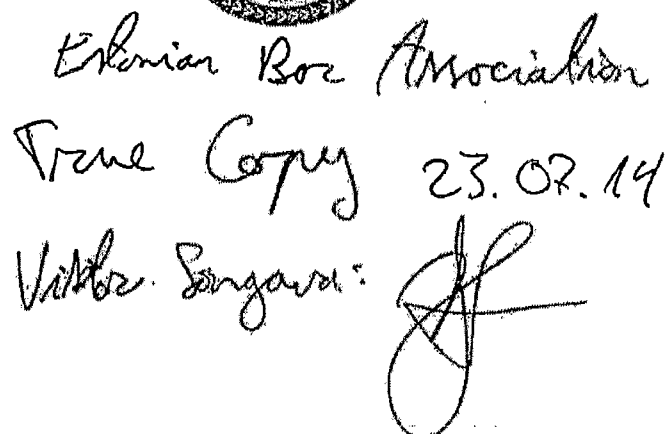 Estonian Box Association
True Copy 23.07.14
Viktor